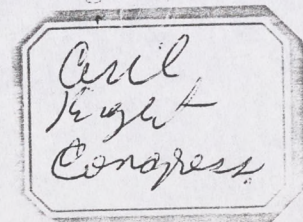 Civil
Right
Congress